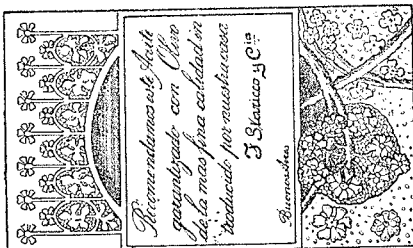 Recomendamos este Aceite
garantizado con Olivo
de la mas fina calidad in
troducido por nuestra casa
J. Starico y Cia
Buenos Aires